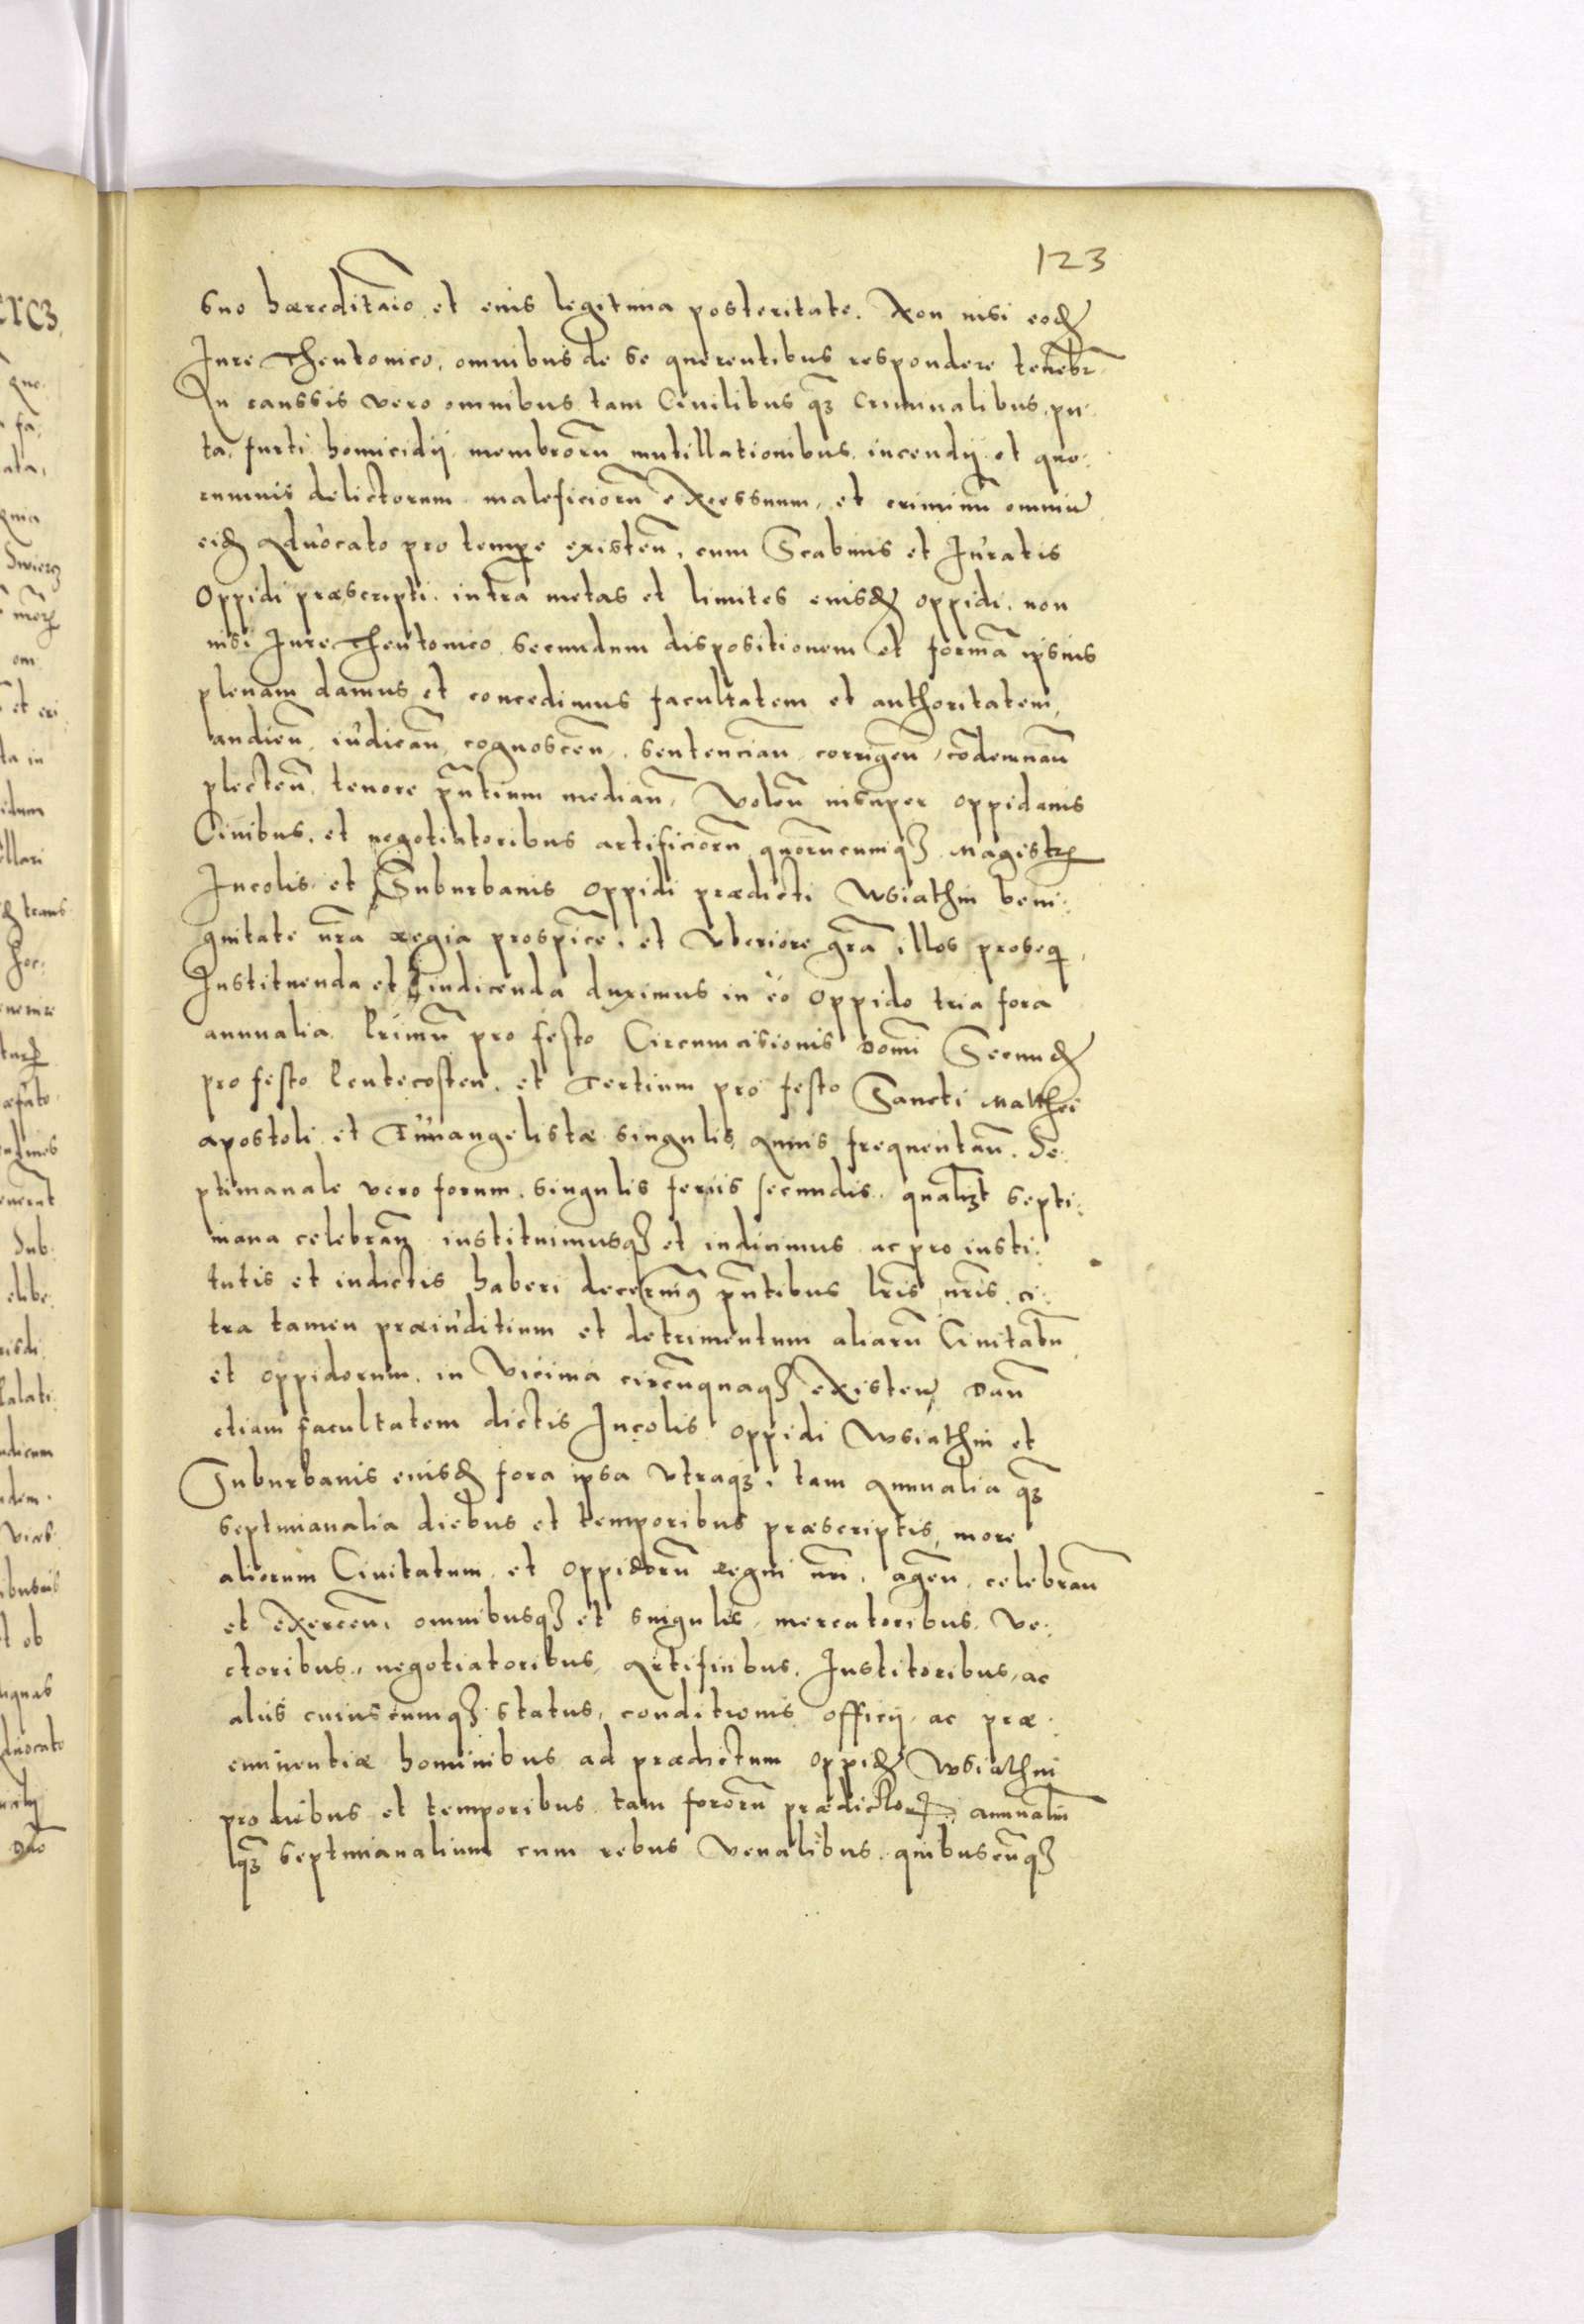 123
suo hæreditaio et eius legitima posteritate. Non nisi eod
Jure Theutonico, omnibus de se querentibus respondere tenebr
In caussis vero omnibus tam Civilibus q₃ Criminalibus, pu:
ta, furti homicidij membrorū mutillationibus incendij et quo:
rumvis delictorum maleficiorū excessuum, et criminū omniū
eid Advocato pro tempe existeñ, cum Scabinis et Juratis
Oppidi præscripti, intra metas et limites eiusd oppidi, non
nisi Jure Theutonico secundum dispositionem et formā ipsius
plenam damus et concedimus facultatem et authoritatem,
audieñ, iudicañ, cognosceñ, sentenciañ corrigeñ, cōdemnañ
plecteñ, tenore pñtium mediañ, Voleñ insuper oppidanis
Civibus, et negotiatoribus artificiorū quorūcumq₃ Magistr
Incolis et Suburbanis oppidi prædicti Wsiathin beni:
gnitate nra regia prospice, et vberiore gra illos proseq
Instituenda et indicenda duximus in eo oppido tria fora
annualia Primū pro festo Circumcisionis Domi Secund
pro festo Pentecosten, et Tertium pro festo Sancti Matthei
apostoli et Euuangelistæ singulis Annis frequentañ. Se:
ptimanale vero forum, singulis feriis secundis, qualibt septi:
mana celebrañ instituimusq₃ et indicimus ac pro insti:
tutis et indictis haberi decernim9 pñtibus lris nris, ci:
tra tamen præiuditium et detrimentum aliarū Civitatū
et oppidorum, in vicinia circūquaq₃ existeñ Dañ
etiam facultatem dictis Incolis oppidi Wsiathin et
Suburbanis eiusd fora ipsa vtraq₃, tam Annualia q₃
septimanalia diebus et temporibus præscriptis, more
aliorum Civitatum, et oppidorū regni nri, ageñ, celebrañ
et exerceñ, omnibusq₃ et singulis, mercatoribus, ve:
ctoribus, negotiatoribus, Artificibus, Institoribus, ac
aliis cuiuscumq₃ status, conditionis officij, ac præ:
eminentiæ hominibus ad prædictum oppid Wsiathin
pro diebus et temporibus tam fororū prædictor annualiū
q₃ septimanalium cum rebus venalibus quibuscūq₃